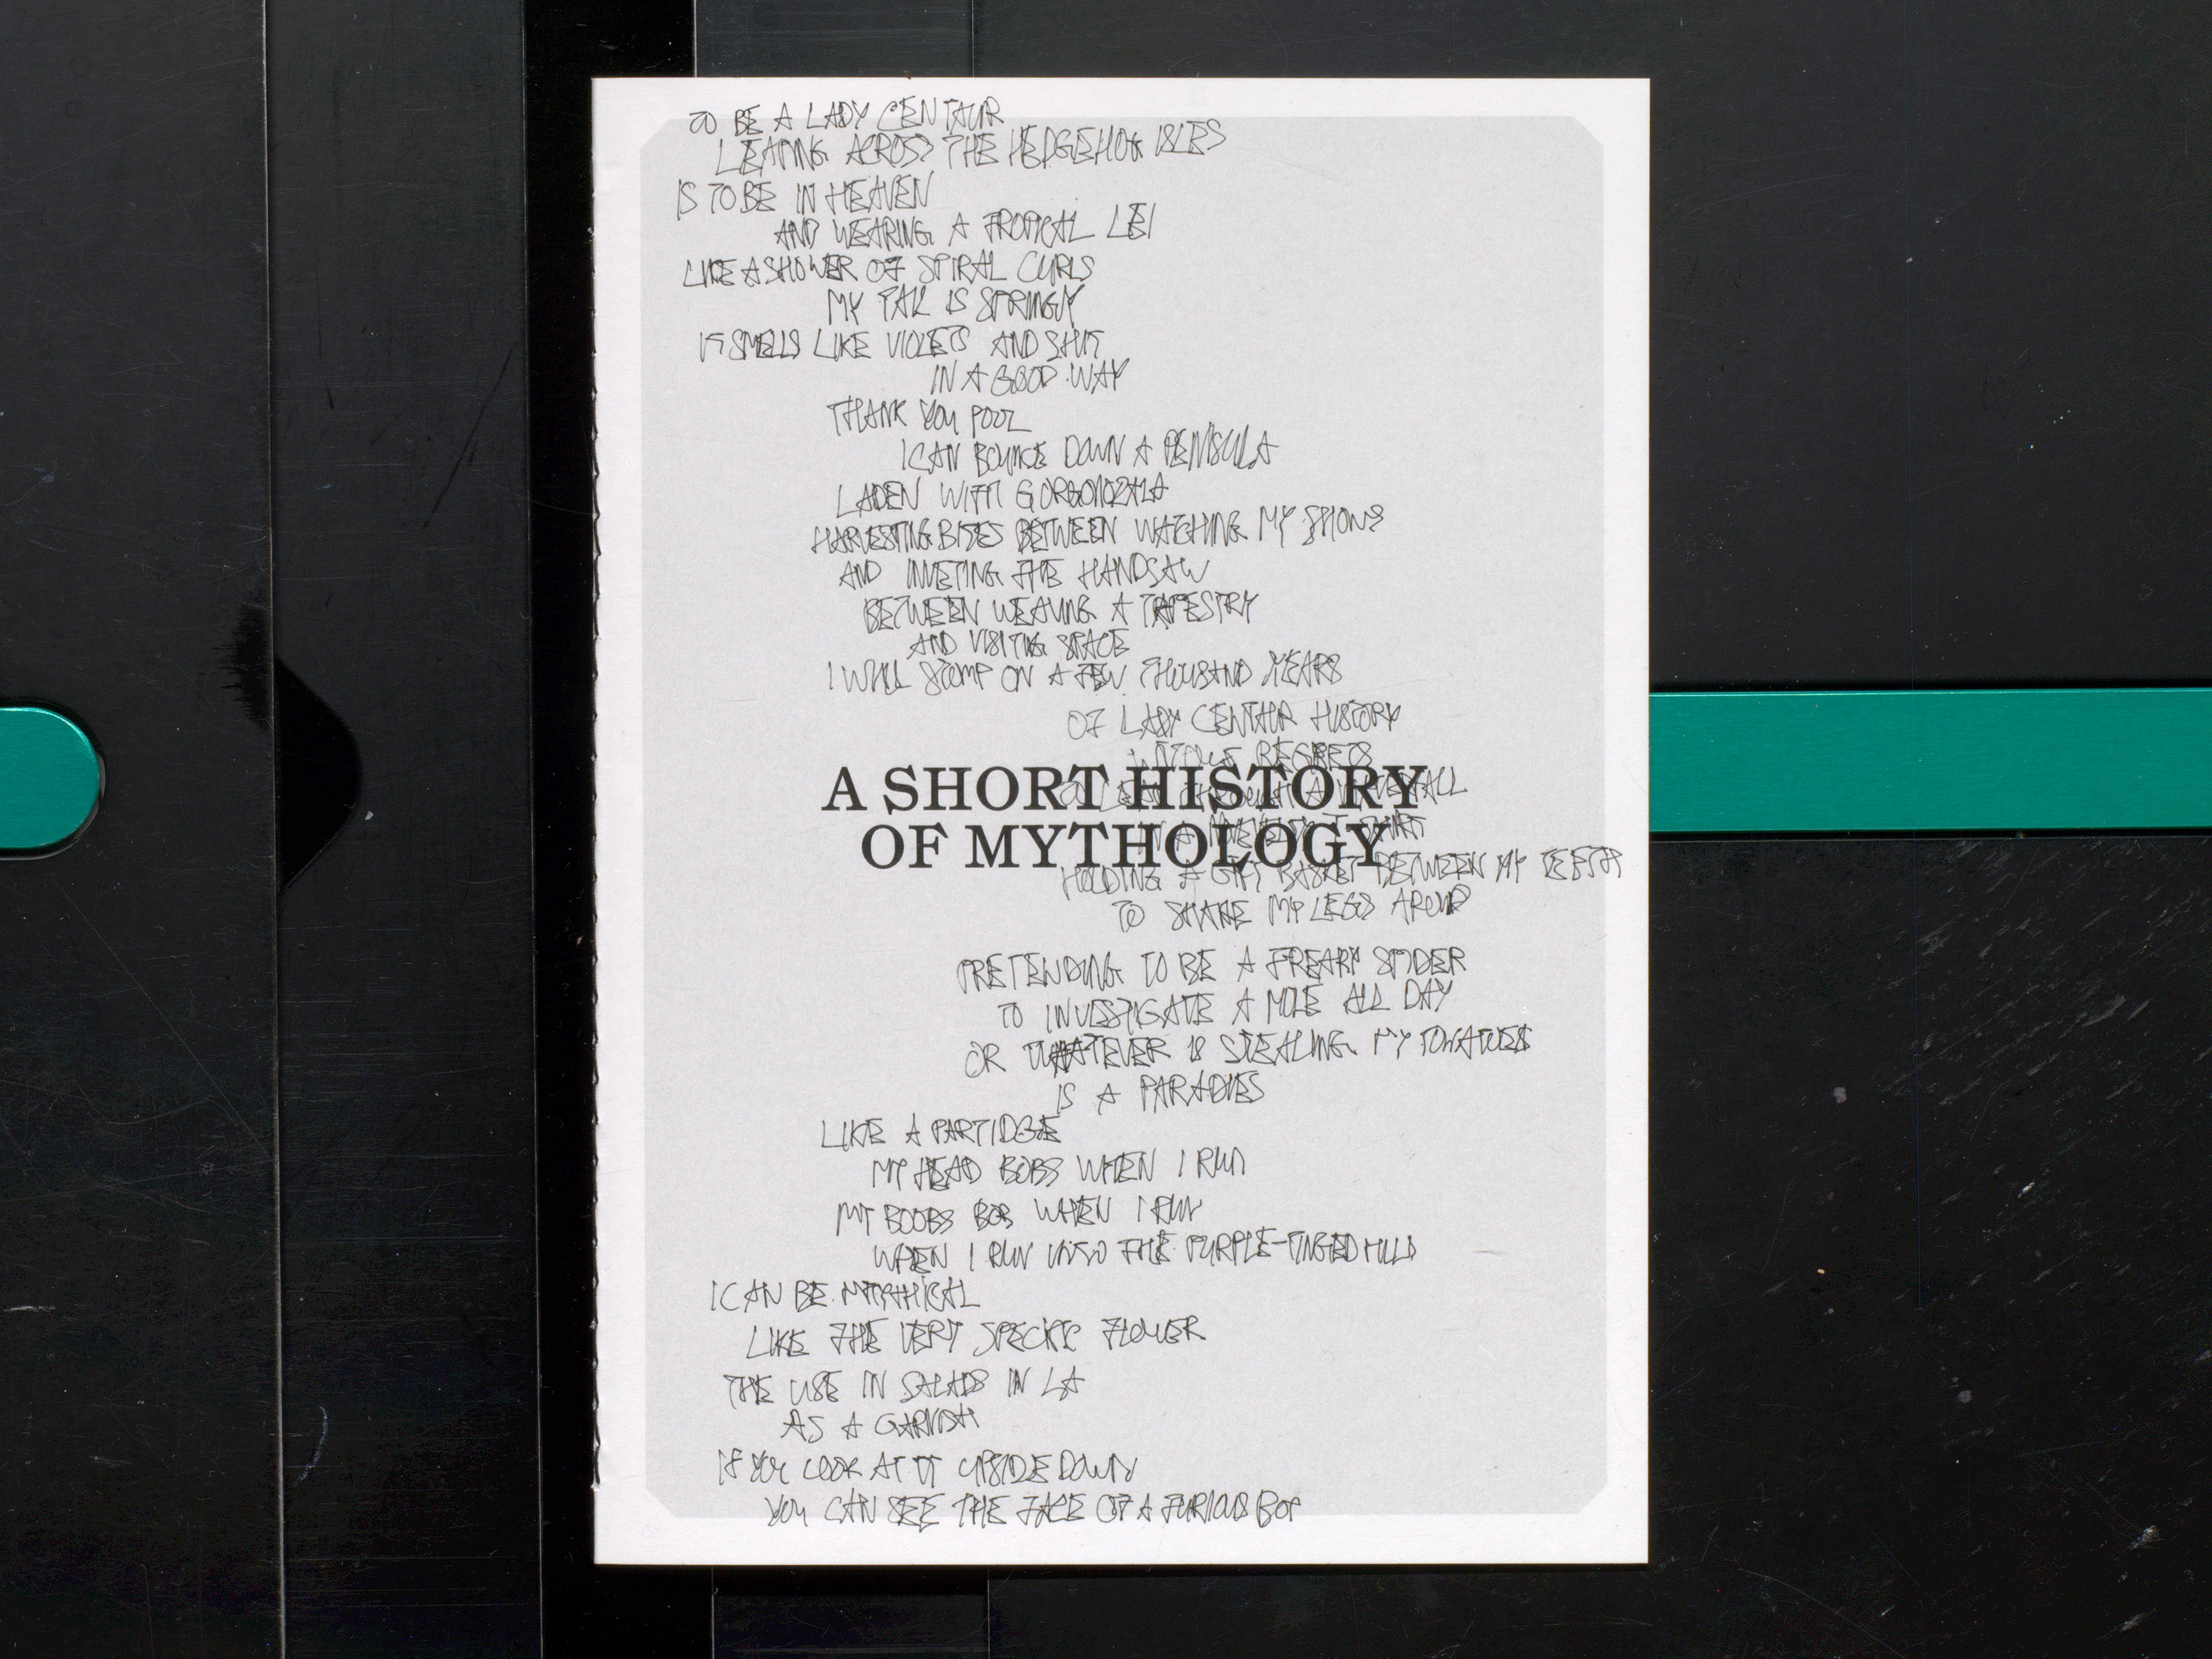 TO BE A LADY CENTAUR
LEAPING ACROSS THE HEDGEHOG ISLES
IS TO BE IN HEAVEN
AND WEARING A TROPICAL LEI
LIKE A SHOWER OF SPIRAL CURLS
MY TAIL IS STRINGY
IT SMELLS LIKE VIOLETS AND SHIT
IN A GOOD WAY
THANK YOU POOL
I CAN BOUNCE DOWN A PENISULA
LADEN WITH GORGONZALA
HARVESTING BITES BETWEEN WATCHING MY
AND INVETING THE HANDSAW
BETWEEN WEAVING A TAPESTRY
AND VISITING SPACE
I WILL STOMP ON A FEW THOUSAND YEARS
OF LADY CENTAUR HISTORY
WITHOUT REGRETS
A SHORT HISTORY
OF MYTHOLOGY
TO LEAP THROUGH A WATERFALL
IN A T SHIRT
HOLDING A GIFT BASKET BETWEEN MY TEETH
TO SHAKE MY LEGS AROUND
PRETENDING TO BE A FREAKY SPIDER
TO INVESTIGATE A MOLE ALL DAY
OR WHATEVER IS STEALING MY TOMATOES
IS A PARADIES
LIKE A PARTIDGE
MY HEAD BOBS WHEN I RUN
MY BOOBS BOB WHEN I RUN
WHEN I RUN INTO THE PURPLE-TINGED HILLS
I CAN BE MYTHICAL
LIKE THE VERY SPECIFIC FLOWER
THE USE IN SALADS IN LA
AS A GARNISH
IF YOU LOOK AT IT UPSIDE DOWN
YOU CAN SEE THE FACE OF A FURIOUS BOY